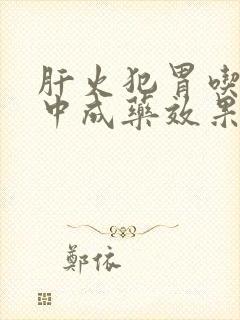 肝火犯胃喫
中成藥效果
鄭依